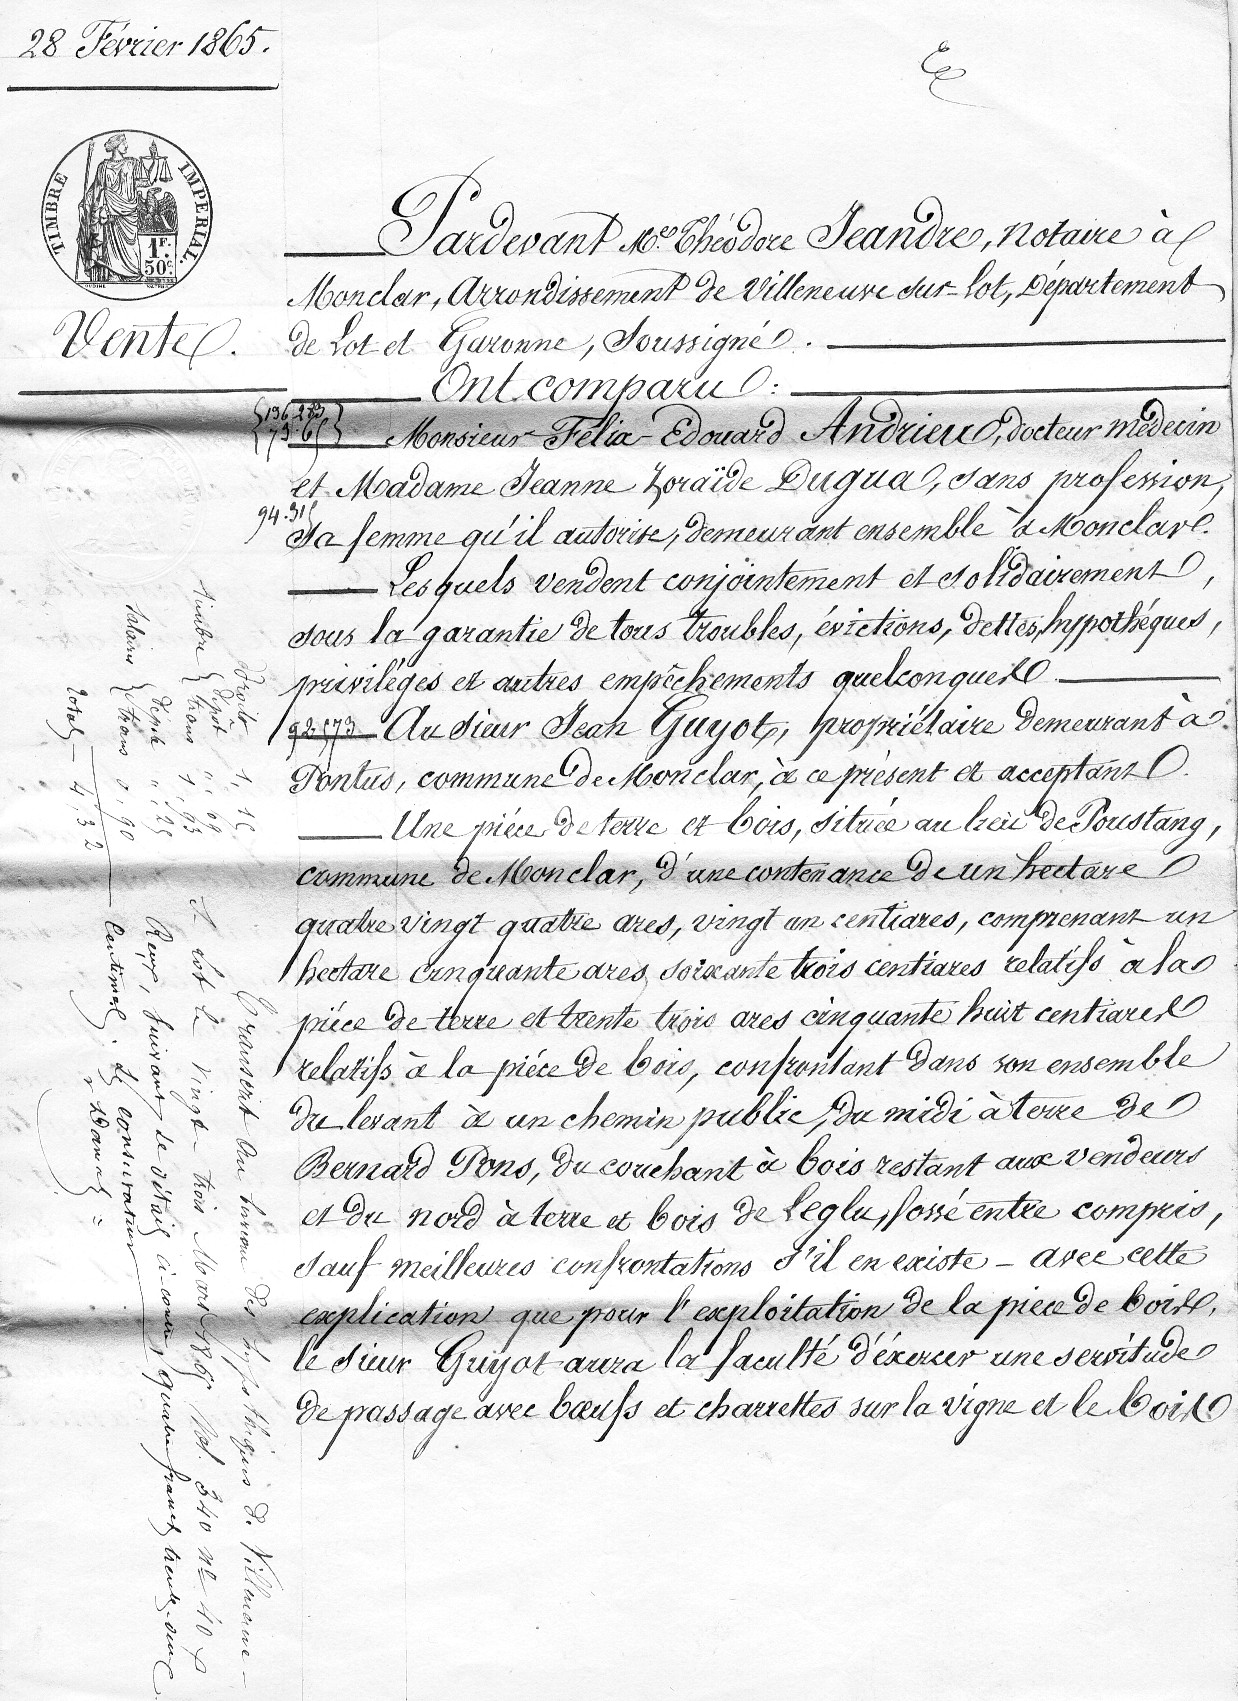 28 Février 1865.
TIMBRE IMPERIAL.
1F.
50c.
Vente.
Pardevant Me. Théodore Jeandre, notaire à
Monclar, Arrondissement de Villeneuve sur-Lot, Département
de Lot et Garonne, Soussigné.
Ont comparu :
Monsieur Félix-Edouard Andrieu, docteur médecin
et Madame Jeanne Zoraïde Dugua, sans profession,
94.31
sa femme qu'il autorise, demeurant ensemble à Monclar.
Lesquels vendent conjointement et solidairement,
sous la garantie de tous troubles, évictions, dettes, hypothéques,
priviléges et autres empêchements quelconques
92.173 Au sieur Jean Guyot, propriétaire demeurant à
Pontus, commune de Monclar, à ce présent et acceptant.
Une piéce de terre et bois, située au lieu de Poustang,
commune de Monclar, d'une contenance de un hectare
quatre vingt quatre ares, vingt un centiares, comprenant un
hectare cinquante ares soixante trois centiares relatifs à la
piéce de terre et trente trois ares cinquante huit centiares
relatifs à la piéce de bois, confrontant dans son ensemble
du levant à un chemin public, du midi à terre de
Bernard Pons, du couchant à bois restant aux vendeurs
et du nord à terre et bois de Leglu, fossé entre compris,
sauf meilleures confrontations s'il en existe - avec cette
explication que pour l'exploitation de la piece de bois,
le sieur Guyot aura la faculté d'éxercer une servitude
de passage avec bœufs et charrettes sur la vigne et le bois
Transcrit au bureau des hypothèques de Villeneuve-
s. Lot le vingt-trois Mars 1865 Vol. 340 no 40
Reçu, suivant le détail ci-contre, quatre francs trente-deux
Centimes. Le conservateur
Droits 1, 15
timbre { dépôt ", 09
trans 1, 93
Salaire { dépôt ", 25
trans 0, 90
total 4, 32